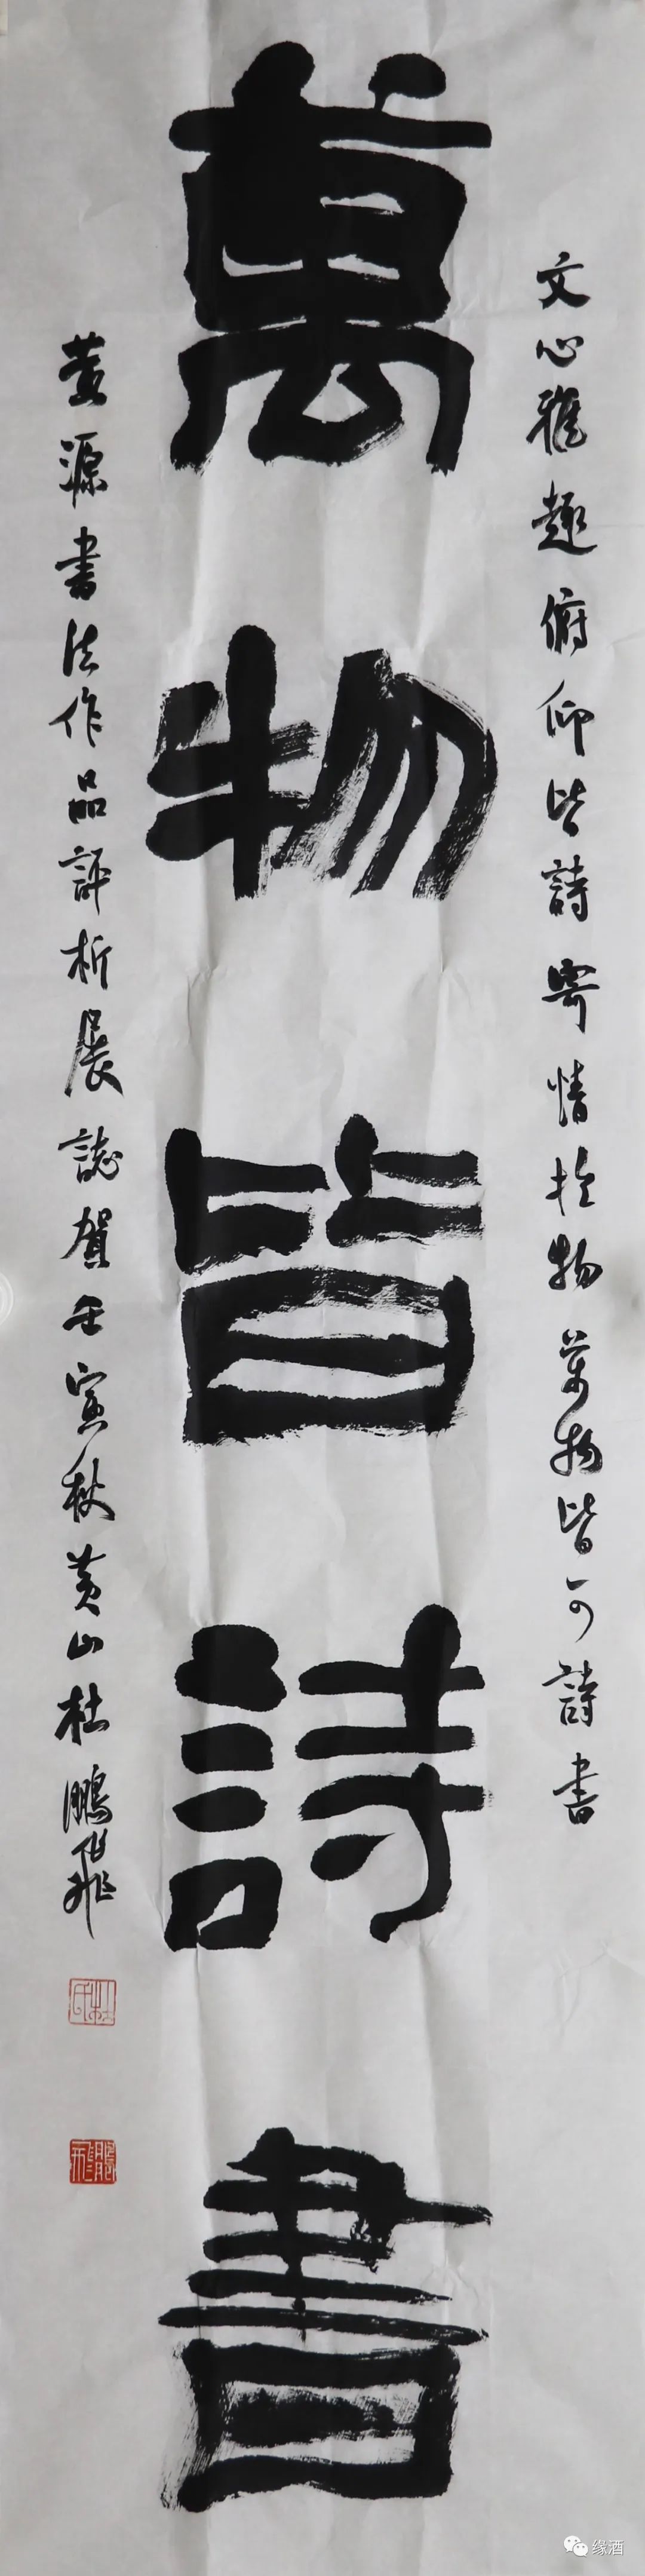 文心雅趣俯仰皆詩寄情於物萬物皆可詩書
萬物皆詩書
黄源書法作品評析展誌賀壬寅秋黄山杜鵬飛
杜氏
鵬飛
缘酒